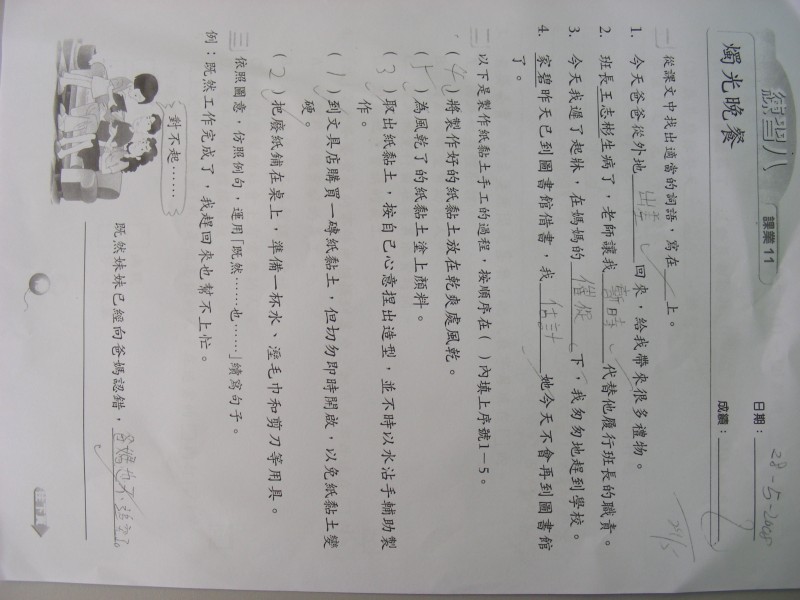 課業 11
燭光晚餐
日期：28-5-2008
成績：
一 從課文中找出適當的詞語，寫在 上。
1. 今天爸爸從外地 出差 回來，給我帶來很多禮物。
2. 班長王志彬生病了，老師讓我 暫時 代替他履行班長的職責。
3. 今天我遲了起牀，在媽媽的 催促 下，我匆匆地趕到學校。
4. 家碧昨天已到圖書館借書，我 估計 她今天不會再到圖書館
了。
二 以下是製作紙黏土手工的過程，按順序在（ ）內填上序號1－5。
（ 4 ）將製作好的紙黏土放在乾爽處風乾。
（ 5 ）為風乾了的紙黏土塗上顏料。
（ 3 ）取出紙黏土，按自己心意捏出造型，並不時以水沾手輔助製
作。
（ 1 ）到文具店購買一磚紙黏土，但切勿即時開啟，以免紙黏土變
硬。
（ 2 ）把廢紙鋪在桌上，準備一杯水、溼毛巾和剪刀等用具。
三 依照圖意，仿照例句，運用「既然……也……」續寫句子。
例：既然工作完成了，我趕回來也幫不上忙。
對不起……
既然妹妹已經向爸媽認錯，爸媽也不追究了。